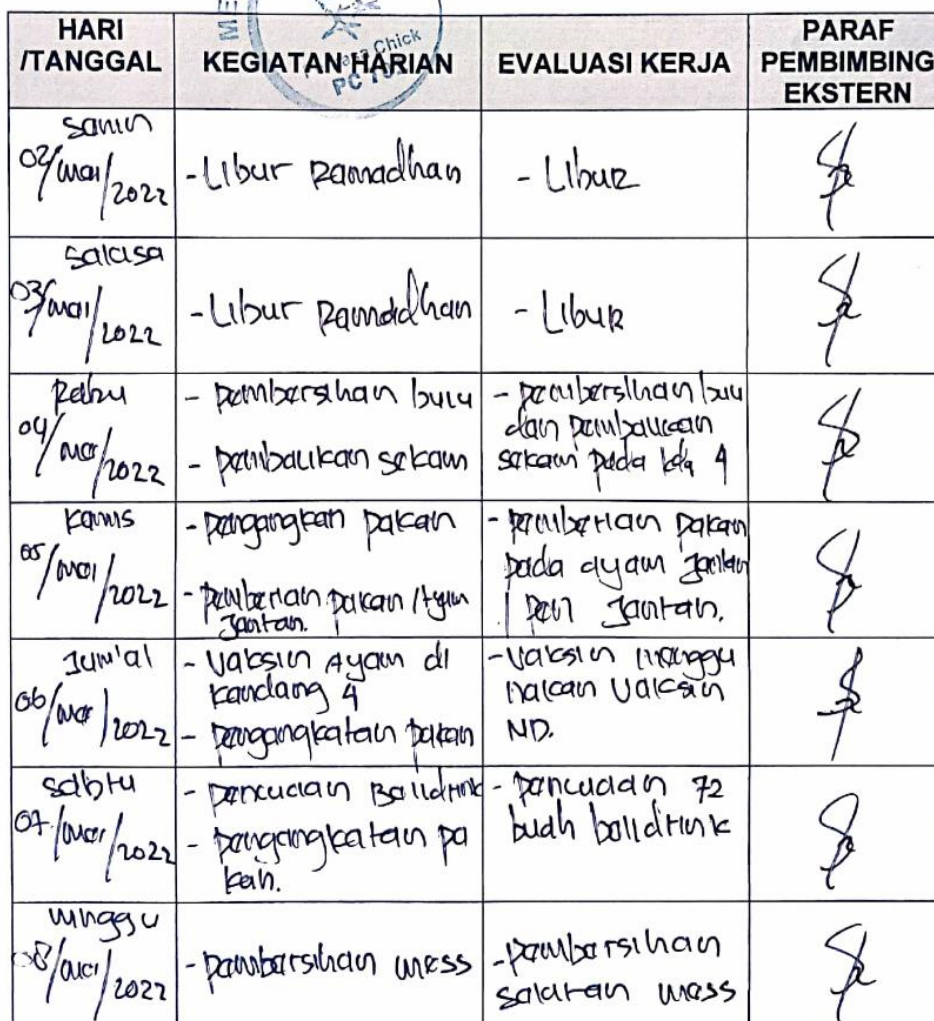 ME
Chick
PC
HARI
/TANGGAL
KEGIATAN HARIAN
EVALUASI KERJA
PARAF
PEMBIMBING
EKSTERN
Senin
02/Mei/2022
- Libur Ramadhan
- Libur
Selasa
03/Mei/2022
- Libur Ramadhan
- Libur
Rabu
04/Mei/2022
- pembersihan bulu
- pembalikan sekam
- pembersihan bulu
dan pembalikan
sekam pada kdg 4
Kamis
05/Mei/2022
- pengangkan pakan
- pemberian pakan Ayam
Jantan.
- pemberian pakan
pada ayam Jantan
Jantan.
Jum'at
06/Mei/2022
- Vaksin Ayam di
kandang 4
- pengangkatan pakan
- Vaksin menggu
nakan Vaksin
ND.
Sabtu
07/Mei/2022
- pencucian Belldrink
- pengangkatan pa
kan.
- pencucian 72
buah belldrink
Minggu
08/Mei/2022
- pembersihan mess
- pembersihan
saluran mess